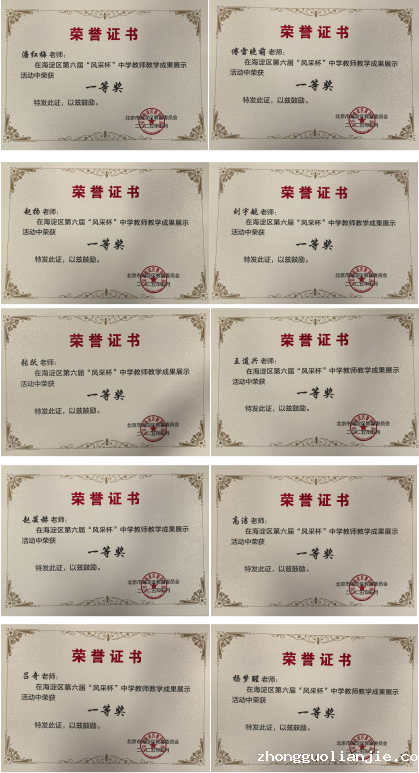 荣誉证书
潘红梅老师：
在海淀区第六届“风采杯”中学教师教学成果展示
活动中荣获
一等奖
特发此证，以兹鼓励。
荣誉证书
傅雪晓萌老师：
在海淀区第六届“风采杯”中学教师教学成果展示
活动中荣获
一等奖
特发此证，以兹鼓励。
荣誉证书
赵杨老师：
在海淀区第六届“风采杯”中学教师教学成果展示
活动中荣获
一等奖
特发此证，以兹鼓励。
荣誉证书
刘宇航老师：
在海淀区第六届“风采杯”中学教师教学成果展示
活动中荣获
一等奖
特发此证，以兹鼓励。
荣誉证书
张跃老师：
在海淀区第六届“风采杯”中学教师教学成果展示
活动中荣获
一等奖
特发此证，以兹鼓励。
荣誉证书
王道兴老师：
在海淀区第六届“风采杯”中学教师教学成果展示
活动中荣获
一等奖
特发此证，以兹鼓励。
荣誉证书
赵英赫老师：
在海淀区第六届“风采杯”中学教师教学成果展示
活动中荣获
一等奖
特发此证，以兹鼓励。
荣誉证书
高洁老师：
在海淀区第六届“风采杯”中学教师教学成果展示
活动中荣获
一等奖
特发此证，以兹鼓励。
荣誉证书
吕奇老师：
在海淀区第六届“风采杯”中学教师教学成果展示
活动中荣获
一等奖
特发此证，以兹鼓励。
荣誉证书
杨梦醒老师：
在海淀区第六届“风采杯”中学教师教学成果展示
活动中荣获
一等奖
特发此证，以兹鼓励。
zhongguolianjie.co